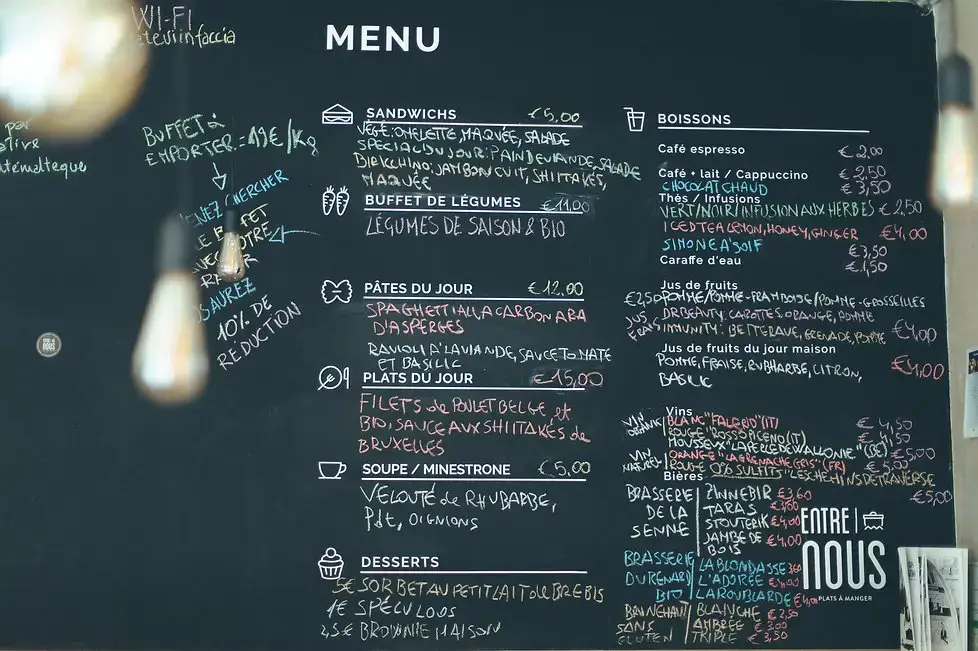 WI-FI
MENU
BUFFET à
EMPORTER = 19€/Kg
LE BUFFET
10% DE
REDUCTION
SANDWICHS €5,00
VÉGÉ: OMELETTE, MAQUÉE, SALADE
SPECIAL DU JOUR: PAIN DE VIANDE, SALADE
BIRICCHINO: JAMBON CUIT, SHIITAKES,
MAQUÉE
BUFFET DE LÉGUMES €11,00
LÉGUMES DE SAISON & BIO
PÂTES DU JOUR €12,00
SPAGHETTI ALLA CARBONARA
D'ASPERGES
RAVIOLI À LA VIANDE, SAUCE TOMATE
ET BASILIC
PLATS DU JOUR €15,00
FILETS de POULET BELGE et
BIO, SAUCE AUX SHIITAKÉS de
BRUXELLES
SOUPE / MINESTRONE €5,00
VELOUTÉ de RHUBARBE,
Pdt, OIGNIONS
DESSERTS
5€ SORBET AU PETIT LAIT de BREBIS
1€ SPÉCULOOS
2,5€ BROWNIE MAISON
BOISSONS
Café espresso €2,00
Café + lait / Cappuccino €2,50
CHOCOLAT CHAUD €3,50
Thés / Infusions
VERT/NOIR/INFUSION AUX HERBES €2,50
ICED TEA LEMON, HONEY, GINGER €4,00
SIMONE A SOIF €3,50
Caraffe d'eau €1,50
Jus de fruits
€2,50 POMME/POMME-FRAMBOISE/POMME-GROSEILLES
JUS FRAIS
DR BEAUTY: CAROTTES, ORANGE, POMME
IMMUNITY: BETTERAVE, GRENADE, POMME €4,00
Jus de fruits du jour maison
POMME, FRAISE, RUBHARBE, CITRON, €4,00
BASILIC
Vins
VIN
BLANC "FALERIO" (IT) €4,50
ROUGE "ROSSO PICENO (IT) €4,50
MOUSSEUX "LA PERLE DE WALLONIE" (BE) €5,00
VIN NATUREL
ORANGE "LA GRENACHE GRIS" (FR) €5,00
ROUGE 0% SULFITS "LES CHEMINS DE TRAVERSE €5,00
Bières
BRASSERIE DE LA SENNE
ZINNEBIR €3,60
TARAS
STOUTERIK €4,00
JAMBE DE BOIS €4,00
BRASSERIE DU RENARD BIO
LA BLONDASSE
L'ADORÉE
LA ROUBLARDE
BRUNEHAUT SANS GLUTEN
BLANCHE €2,50
AMBRÉE €3,00
TRIPLE €3,50
ENTRE
NOUS
PLATS À MANGER